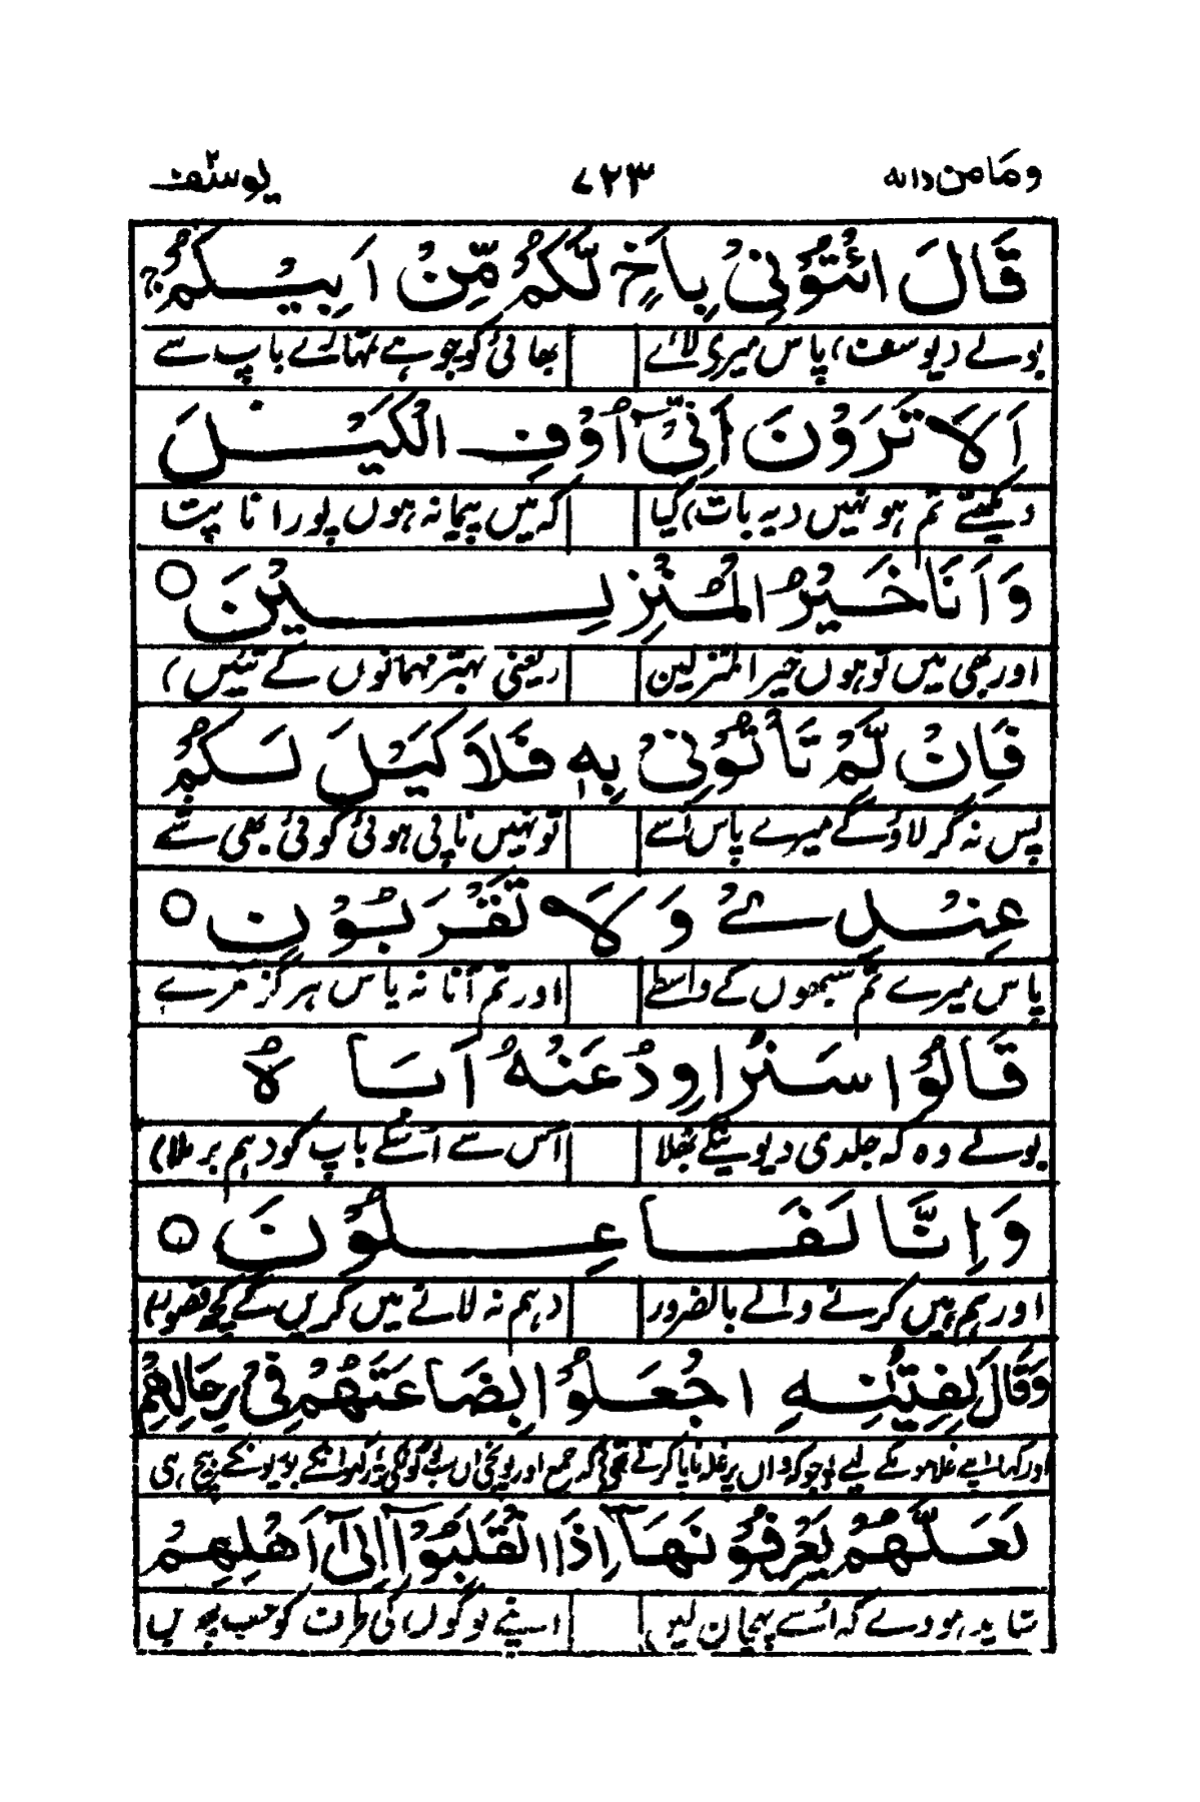 وما من دابه ۷۲۳ یوسف ۱۲
قَالَ ائْتُوْنِیْ بِاَخٍ لَّكُمْ مِّنْ اَبِیْكُمْ ج
بولے (یوسف) پاس میری لائے بھائی کو جو ہے تمہارے باپ سے
اَلَا تَرَوْنَ اَنِّیْۤ اُوْفِی الْكَیْلَ
دیکھتے تم ہو نہیں (یہ بات) کیا کہ میں پیمانہ ہوں پورا ناپت
وَاَنَا خَیْرُ الْمُنْزِلِیْنَ ○
اور بھی میں تو ہوں خیر المنزلین (یعنی بہتر مہمانوں کے تئیں)
فَاِنْ لَّمْ تَاْتُوْنِیْ بِهٖ فَلَا كَیْلَ لَكُمْ
پس نہ گر لاؤ گے میرے پاس اُسے تو نہیں ناپی ہوئی کوئی بھی شے
عِنْدِیْ وَلَا تَقْرَبُوْنِ ○
پاس میرے تم سبھوں کے واسطے اور تم آنا نہ پاس ہرگز مرے
قَالُوْا سَنُرَاوِدُ عَنْهُ اَبَاهُ
بولے وہ کہ جلدی دیوینگے بھلا اُس سے اُسکے باپ کو (ہم برملا)
وَاِنَّا لَفَاعِلُوْنَ ○
اور ہم ہیں کرنے والے بالضرور (ہم نہ لانے میں کریں گے کچھ قصور)
وَقَالَ لِفِتْیٰنِهِ اجْعَلُوْا بِضَاعَتَهُمْ فِیْ رِحَالِهِمْ
اور کہا اپنے غلاموں کے لیے بیچ ہی
لَعَلَّهُمْ یَعْرِفُوْنَهَاۤ اِذَا انْقَلَبُوْۤا اِلٰۤی اَهْلِهِمْ
شاید ہووے کہ اُسے پہچان لیں اپنے لوگوں کی طرف کو جب پھریں